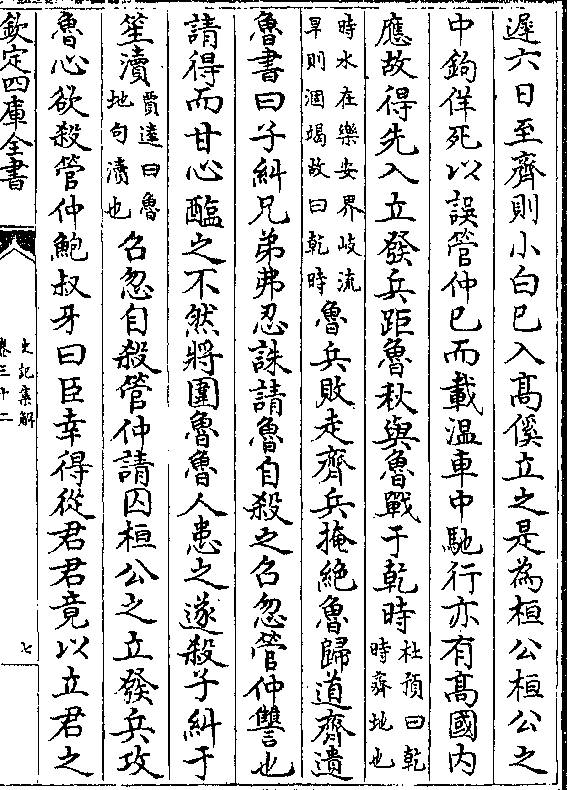 遲六日至齊則小白已入髙傒立之是為桓公桓公之
中鉤佯死以誤管仲已而載温車中馳行亦有髙國内
應故得先入立發兵距魯秋與魯戰于乾時杜預曰乾時齊地也
時水在樂安界岐流旱則涸竭故曰乾時魯兵敗走齊兵掩絶魯歸道齊遺
魯書曰子糾兄弟弗忍誅請魯自殺之召忽管仲讐也
請得而甘心醢之不然將圍魯魯人患之遂殺子糾于
笙瀆賈逵曰魯地句瀆也召忽自殺管仲請囚桓公之立發兵攻
魯心欲殺管仲鮑叔牙曰臣幸得從君君竟以立君之
欽定四庫全書
史記集解
卷三十二
七